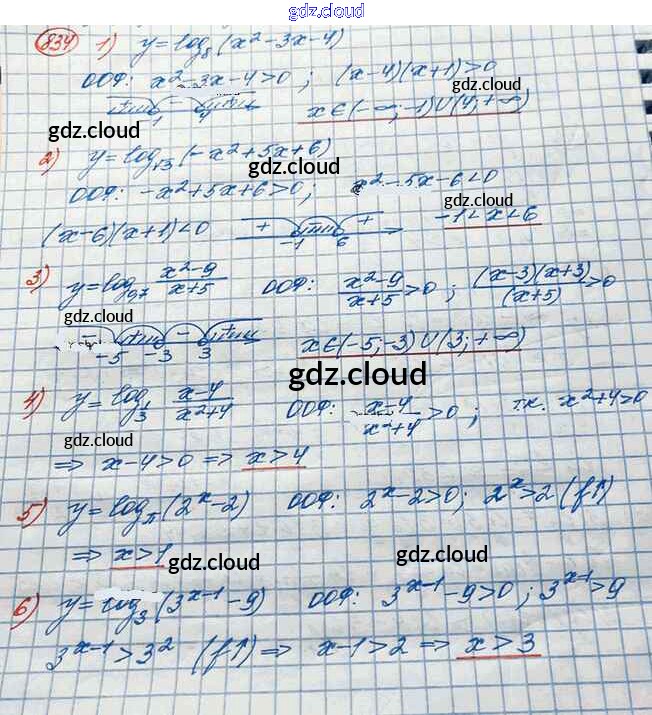 gdz.cloud
834 1) y = log₈(x² - 3x - 4)
ООФ: x² - 3x - 4 > 0 ; (x - 4)(x + 1) > 0
+ - + -1 4 x ∈ (-∞; -1) ∪ (4; +∞)
gdz.cloud gdz.cloud
2) y = log₁₃(-x² + 5x + 6)
gdz.cloud
ООФ: -x² + 5x + 6 > 0 ; x² - 5x - 6 < 0
gdz.cloud
(x - 6)(x + 1) < 0 + - + -1 6 -1 < x < 6
3) y = log₀,₇ (x² - 9)/(x + 5) ООФ: (x² - 9)/(x + 5) > 0 ; ((x - 3)(x + 3))/(x + 5) > 0
gdz.cloud
- + - + -5 -3 3 x ∈ (-5; -3) ∪ (3; +∞)
gdz.cloud
4) y = log₁/₃ (x - 4)/(x² + 4) ООФ: (x - 4)/(x² + 4) > 0 ; т.к. x² + 4 > 0
gdz.cloud
⇒ x - 4 > 0 ⇒ x > 4
gdz.cloud
5) y = log_π(2ˣ - 2) ООФ: 2ˣ - 2 > 0 ; 2ˣ > 2 (f↑)
⇒ x > 1
gdz.cloud gdz.cloud
6) y = log₃(3ˣ⁻¹ - 9) ООФ: 3ˣ⁻¹ - 9 > 0 ; 3ˣ⁻¹ > 9
gdz.cloud
3ˣ⁻¹ > 3² (f↑) ⇒ x - 1 > 2 ⇒ x > 3